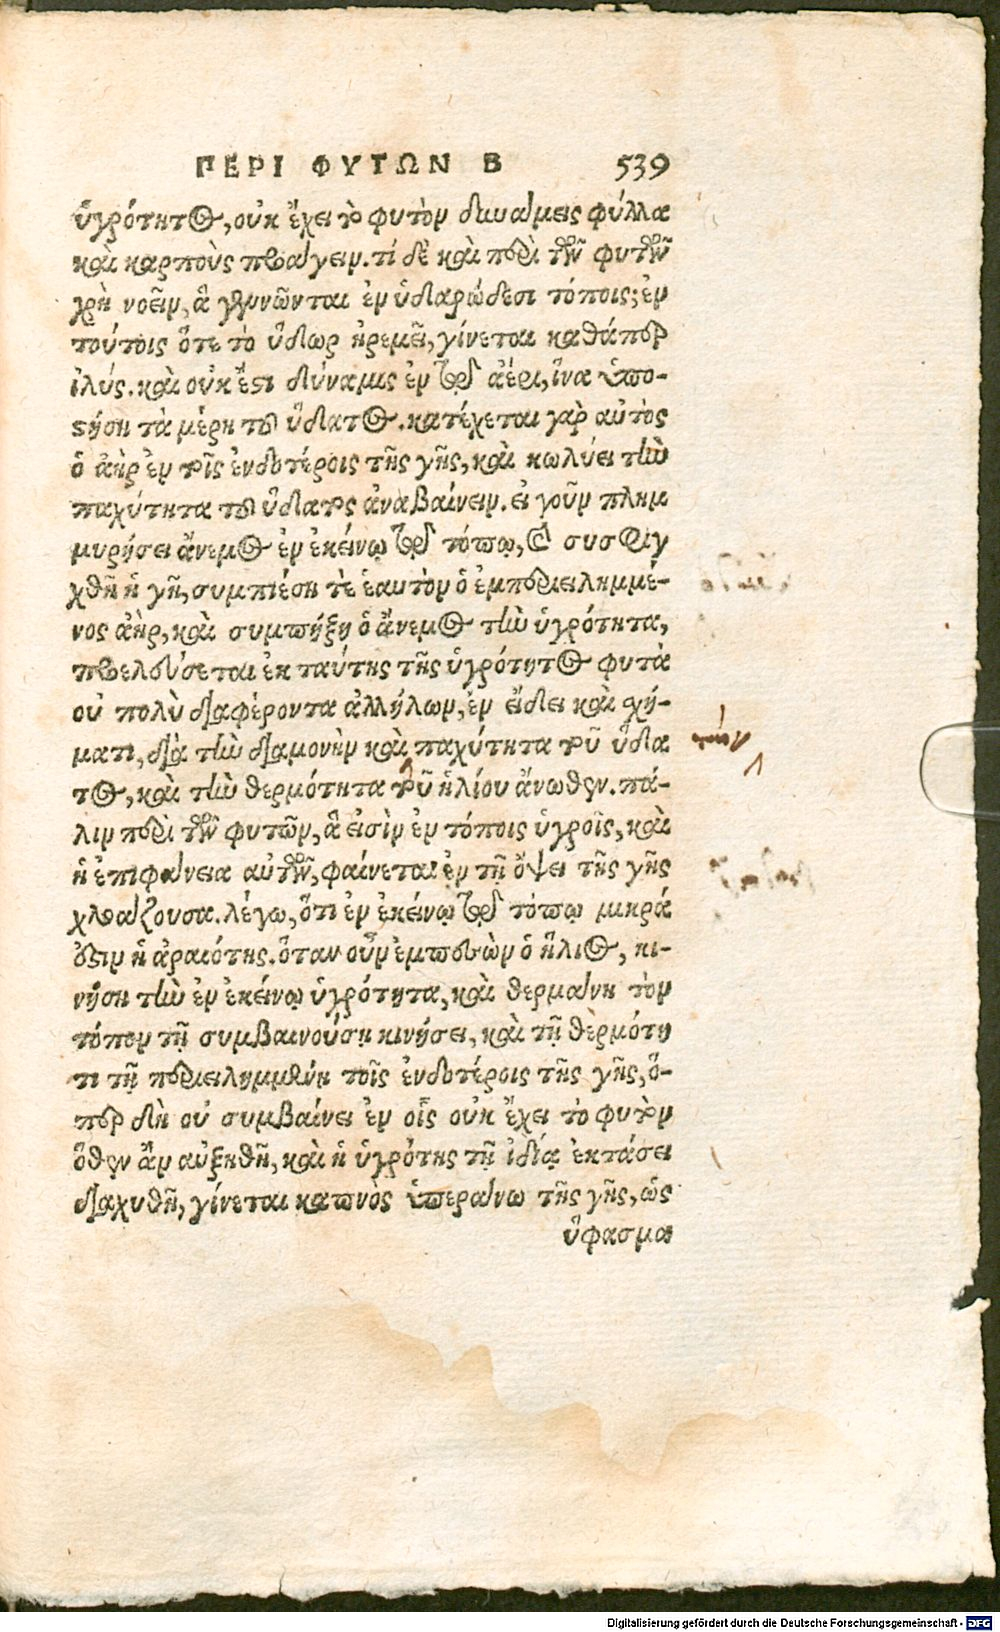 ΠΕΡΙ ΦΥΤΩΝ Β 539
ὑγρότητος, οὐκ ἔχει τὸ φυτὸν δυνάμεις φύλλα
καὶ καρποὺς προάγειν. τί δὲ καὶ περὶ τῶν φυτῶν
χρὴ νοεῖν, ἃ γεννῶνται ἐν ὑδαρώδεσι τόποις; ἐν
τούτοις ὅτε τὸ ὕδωρ ἠρεμεῖ, γίνεται καθάπερ
ἰλύς. καὶ οὐκ ἔστι δύναμις ἐν τῷ ἀέρι, ἵνα ὑπο-
στήση τὰ μέρη τοῦ ὕδατος. κατέχεται γὰρ αὐτὸς
ὁ ἀὴρ ἐν τοῖς ἐνδοτέροις τῆς γῆς, καὶ κωλύει τὴν
παχύτητα τοῦ ὕδατος ἀναβαίνειν. εἰ γοῦν πλημ
μυρήσει ἄνεμος ἐν ἐκείνῳ τῷ τόπῳ, καὶ συσφιγ
χθῆ ἡ γῆ, συμπιέση τὲ ἑαυτὸν ὁ ἐμπεριειλημμέ-
νος ἀὴρ, καὶ συμπήξη ὁ ἄνεμος τὴν ὑγρότητα,
προελεύσεται ἐκ ταύτης τῆς ὑγρότητος φυτὰ
οὐ πολὺ διαφέροντα ἀλλήλων, ἐν εἴδει καὶ σχή-
ματι, διὰ τὴν διαμονὴν καὶ παχύτητα τοῦ ὕδα
τος, καὶ τὴν θερμότητα τοῦ ἡλίου ἄνωθεν. πά-
λιν περὶ τῶν φυτῶν, ἃ εἰσὶν ἐν τόποις ὑγροῖς, καὶ
ἡ ἐπιφάνεια αὐτῶν, φαίνεται ἐν τῇ ὄψει τῆς γῆς
χλοάζουσα. λέγω, ὅτι ἐν ἐκείνῳ τῷ τόπῳ μικρά
ἐστιν ἡ ἀραιότης. ὅταν οὖν ἐμπεσὼν ὁ ἥλιος, κι-
νήση τὴν ἐν ἐκείνῳ ὑγρότητα, καὶ θερμαίνη τὸν
τόπον τῇ συμβαινούσῃ κινήσει, καὶ τῇ θερμότη
τι τῇ περιειλημμένη τοῖς ἐνδοτέροις τῆς γῆς, ὅ-
περ δὴ οὐ συμβαίνει ἐν οἷς οὐκ ἔχει τὸ φυτὸν
ὅθεν ἂν αὐξηθῆ, καὶ ἡ ὑγρότης τῇ ἰδίᾳ ἐκτάσει
διαχυθῆ, γίνεται καπνὸς ὑπεράνω τῆς γῆς, ὡς
ὕφασμα
Digitalisierung gefördert durch die Deutsche Forschungsgemeinschaft - DFG